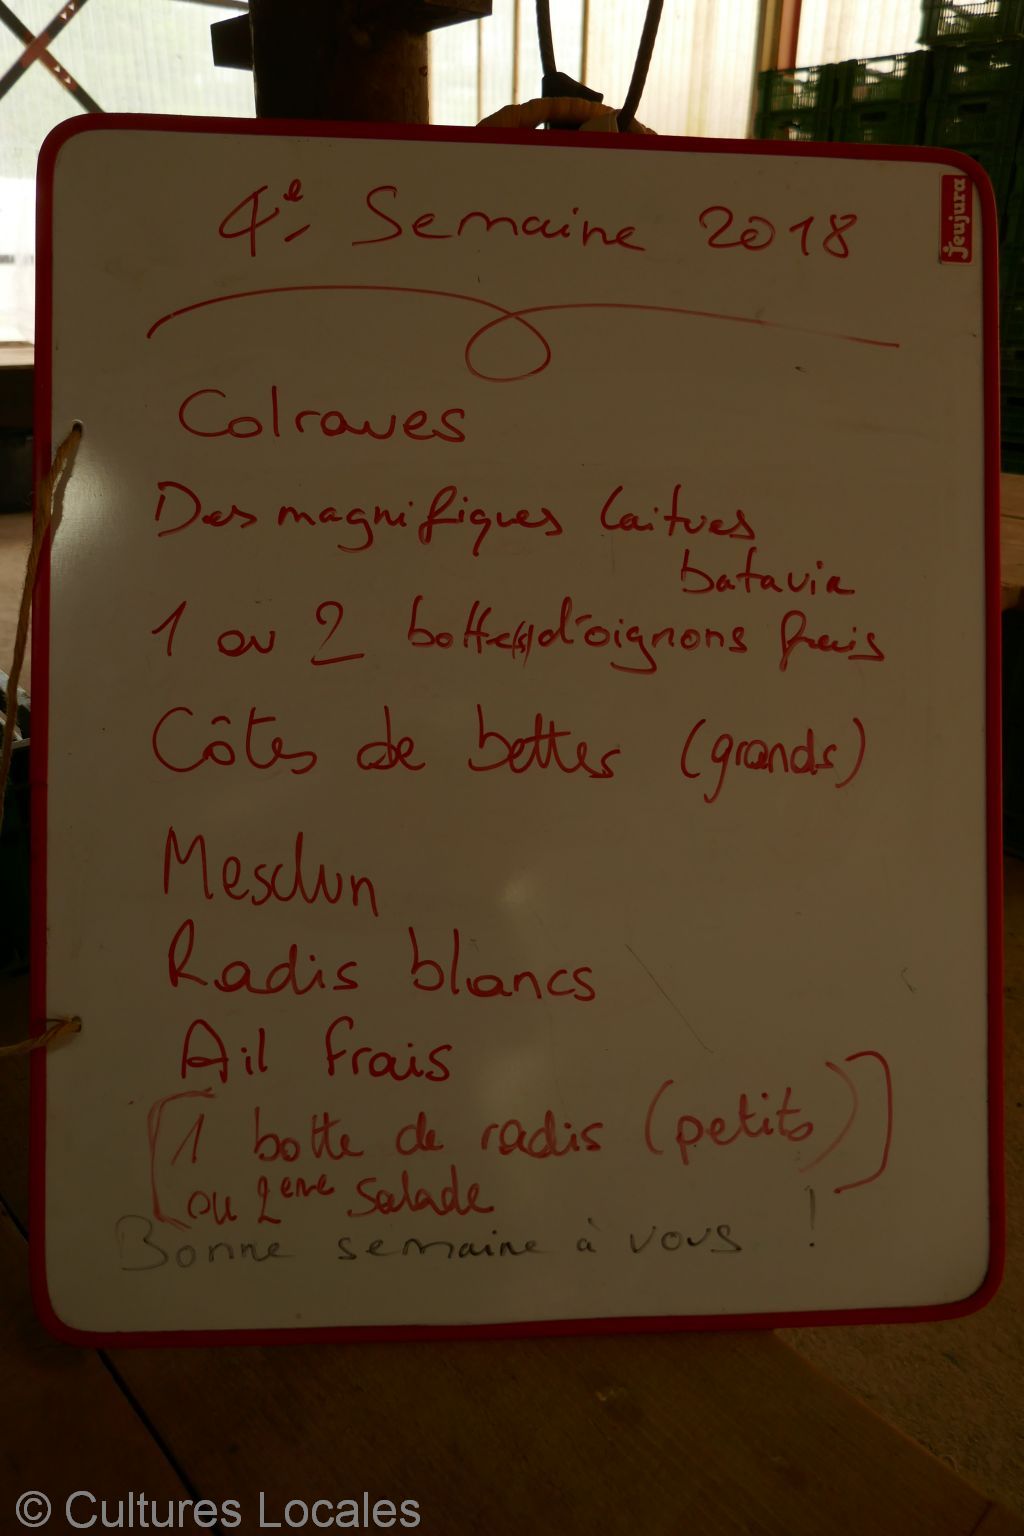 4e. Semaine 2018
Jeujura
Colraves
Des magnifiques laitues
batavia
1 ou 2 botte(s) d'oignons frais
Côtes de bettes (grands)
Mesclun
Radis blancs
Ail frais
[1 botte de radis (petits)]
ou 2ème Salade
Bonne semaine à vous !
© Cultures Locales